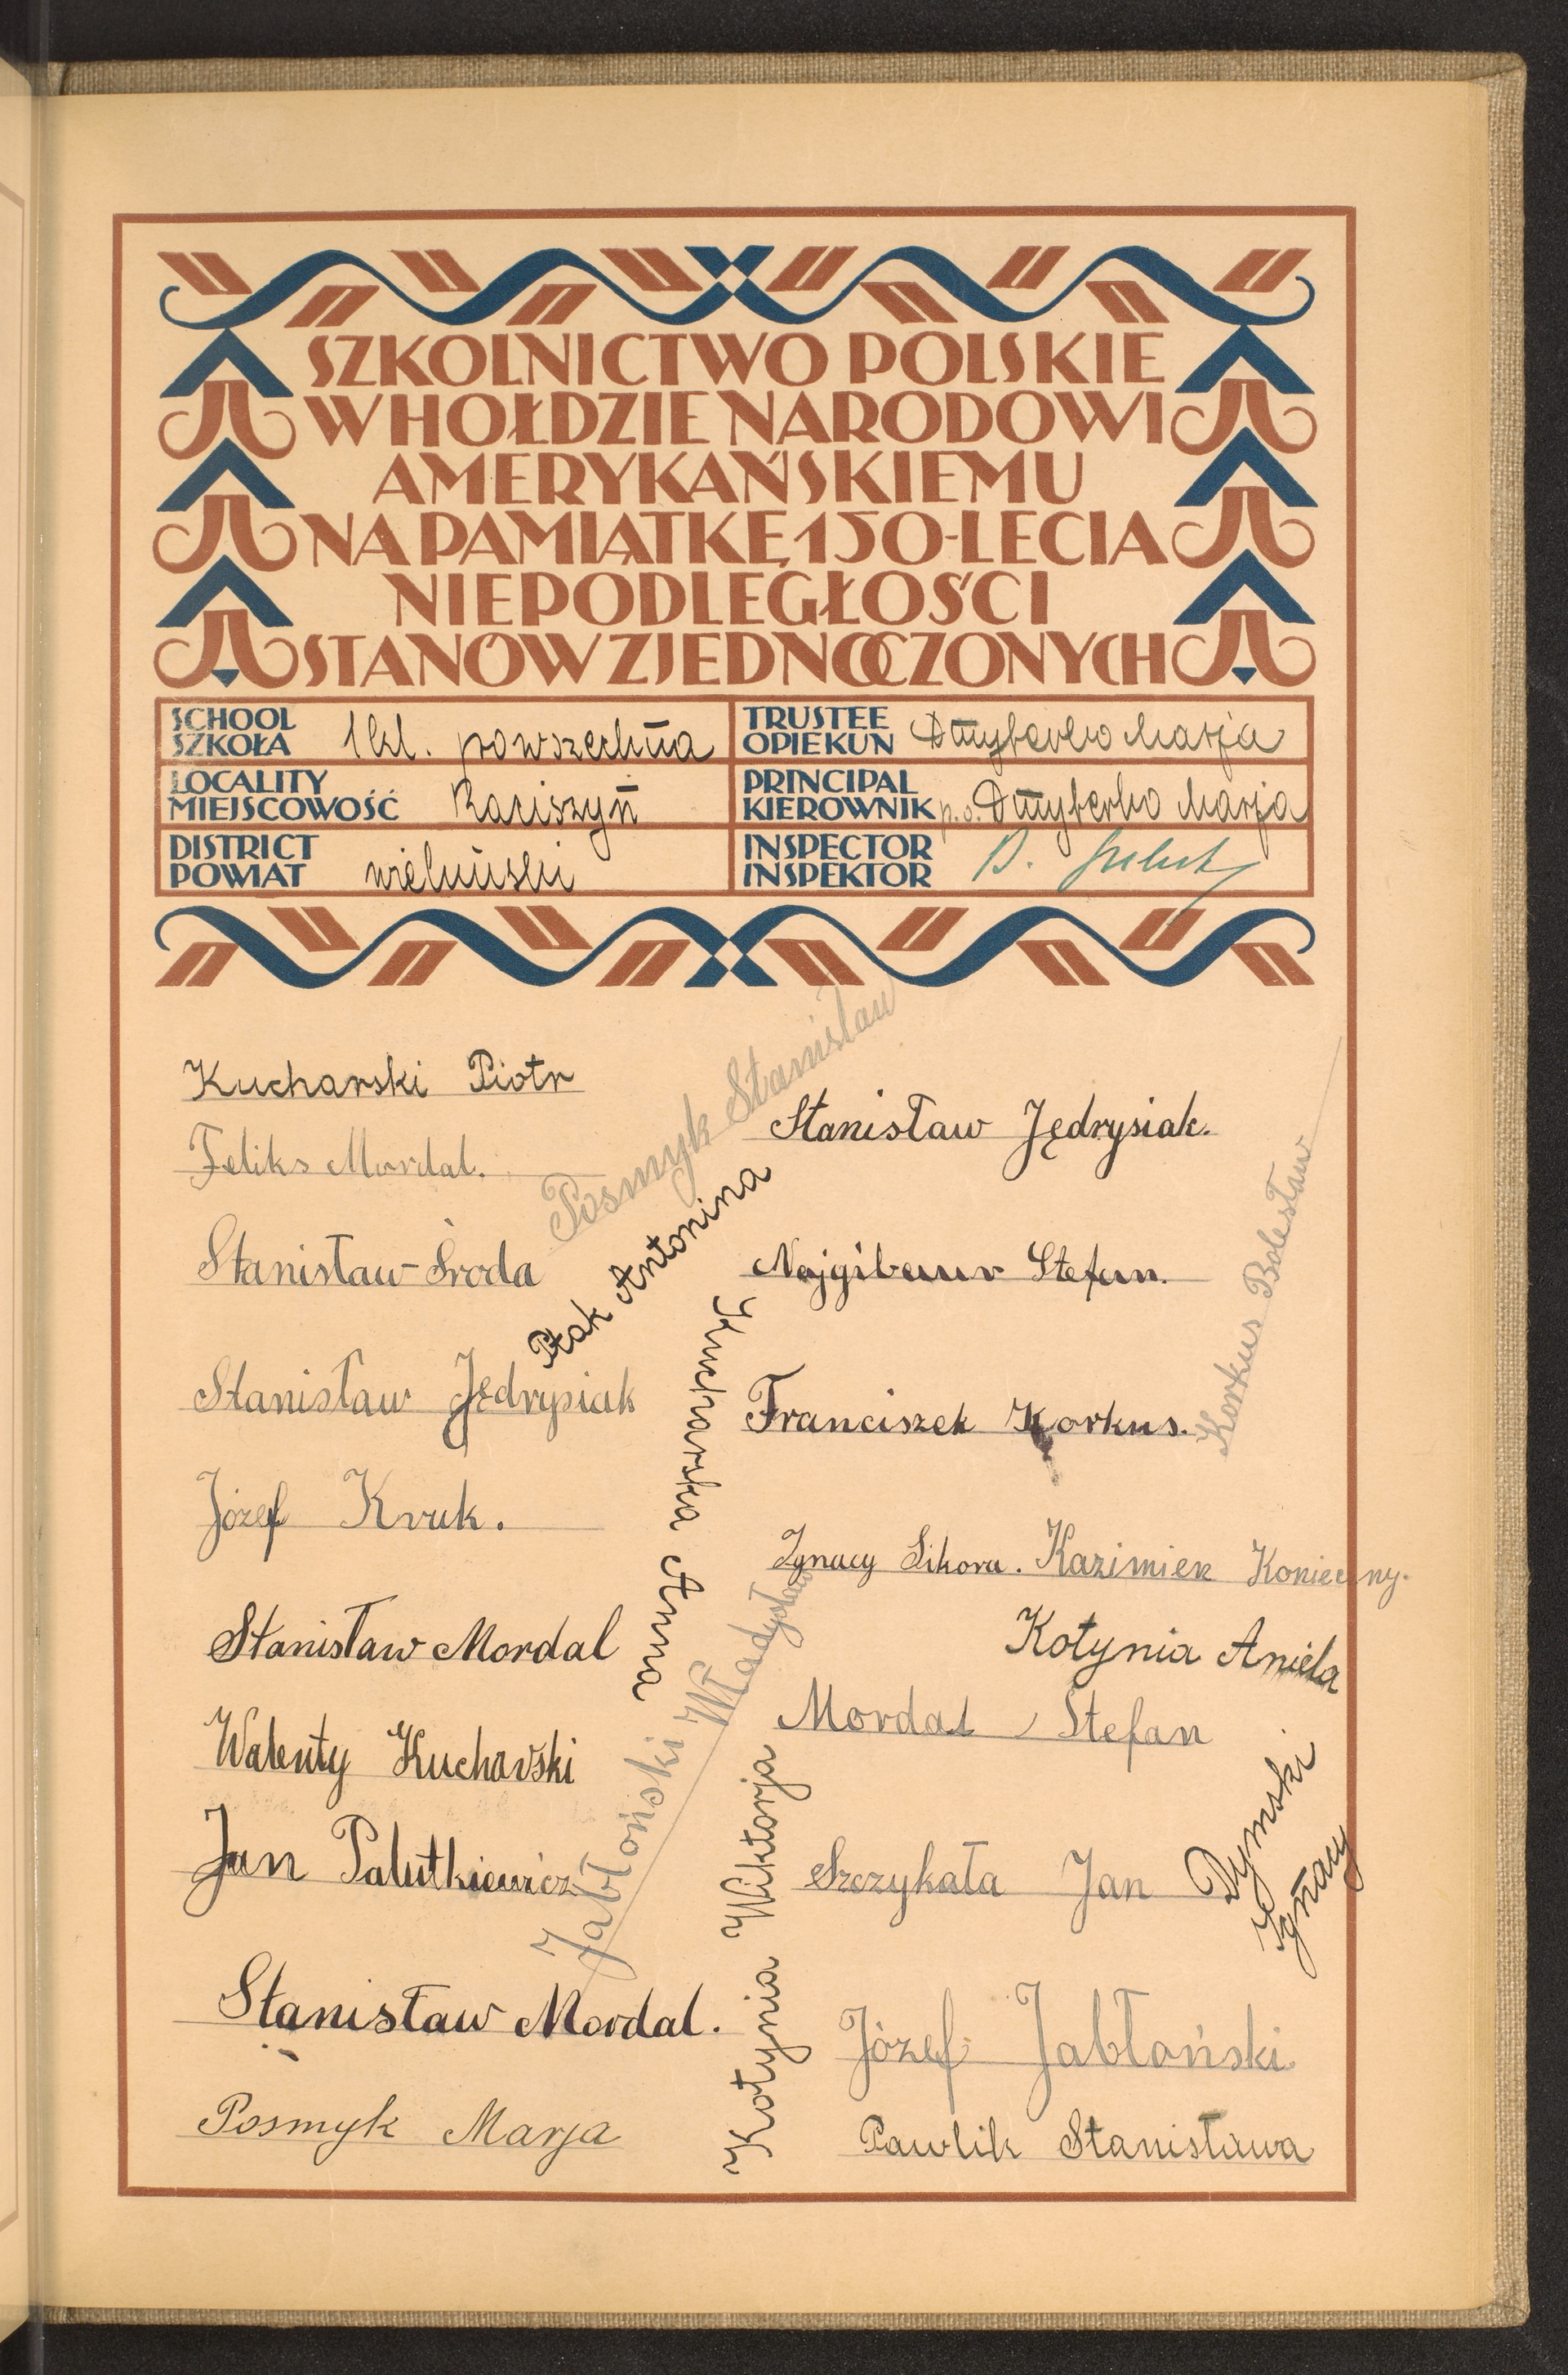 SZKOLNICTWO POLSKIE
W HOŁDZIE NARODOWI
AMERYKAŃSKIEMU
NA PAMIĄTKĘ 150-LECIA
NIEPODLEGŁOŚCI
STANÓW ZJEDNOCZONYCH
SCHOOL
SZKOŁA 1 kl. powszechna
TRUSTEE
OPIEKUN Dmyterko Marja
LOCALITY
MIEJSCOWOŚĆ Raciszyn
PRINCIPAL
KIEROWNIK p.o. Dmyterko Marja
DISTRICT
POWIAT wieluński
INSPECTOR
INSPEKTOR
Kucharski Piotr
Feliks Mordal.
Stanisław Środa
Stanisław Jędrysiak
Józef Kruk.
Stanisław Mordal
Walenty Kucharski
Jan Palutkiewicz
Stanisław Mordal.
Posmyk Marja
Posmyk Stanisław
Ptak Antonina
Kucharska Anna
Jabłoński Władysław
Kotynia Wiktorja
Stanisław Jędrysiak.
Najgibauer Stefan.
Franciszek Korkus.
Korkus Bolesław
Ignacy Sikora. Kazimierz Konieczny.
Kotynia Aniela
Mordal Stefan
Szczykała Jan
Dymski
Ignacy
Józef Jabłoński
Pawlik Stanisława